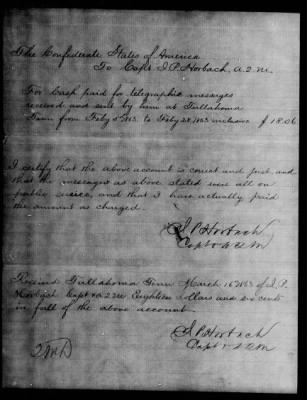 The Confederate States of America
To Capt J. P. Horbach, A.Q.M.
For Cash paid for telegraphic messages
received and sent by him at Tullahoma
Tenn from Feby 5th 1863 to Feby 28 1863 inclusive $ 18.06
I certify that the above account is correct and just, and
that the messages as above stated were all on
public service, and that I have actually paid
the amount as charged.
J. P. Horbach
Capt & A.Q.M
Received Tullahoma Tenn March 16 1863 of J. P.
Horbach Capt & A.Q.M. Eighteen dollars and six cents
in full of the above account.
J. P. Horbach
Capt & A.Q.M